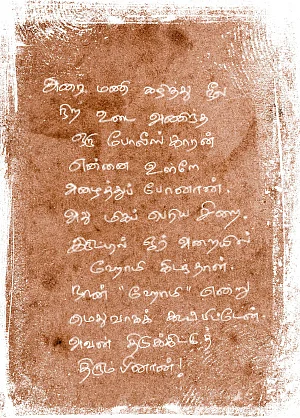 அரை மணி கழித்து நீல
நிற உடை அணிந்த
ஒரு போலீஸ்காரன்
என்னை உள்ளே
அழைத்துப் போனான்.
அது மிகப் பெரிய சிறை.
ஓர் அறையில்
ஹோமி கிடந்தான்.
நான் "ஹோமி" என்று
மெதுவாகக் கூப்பிட்டேன்.
அவன் திடுக்கிட்டுத்
திரும்பினான்!